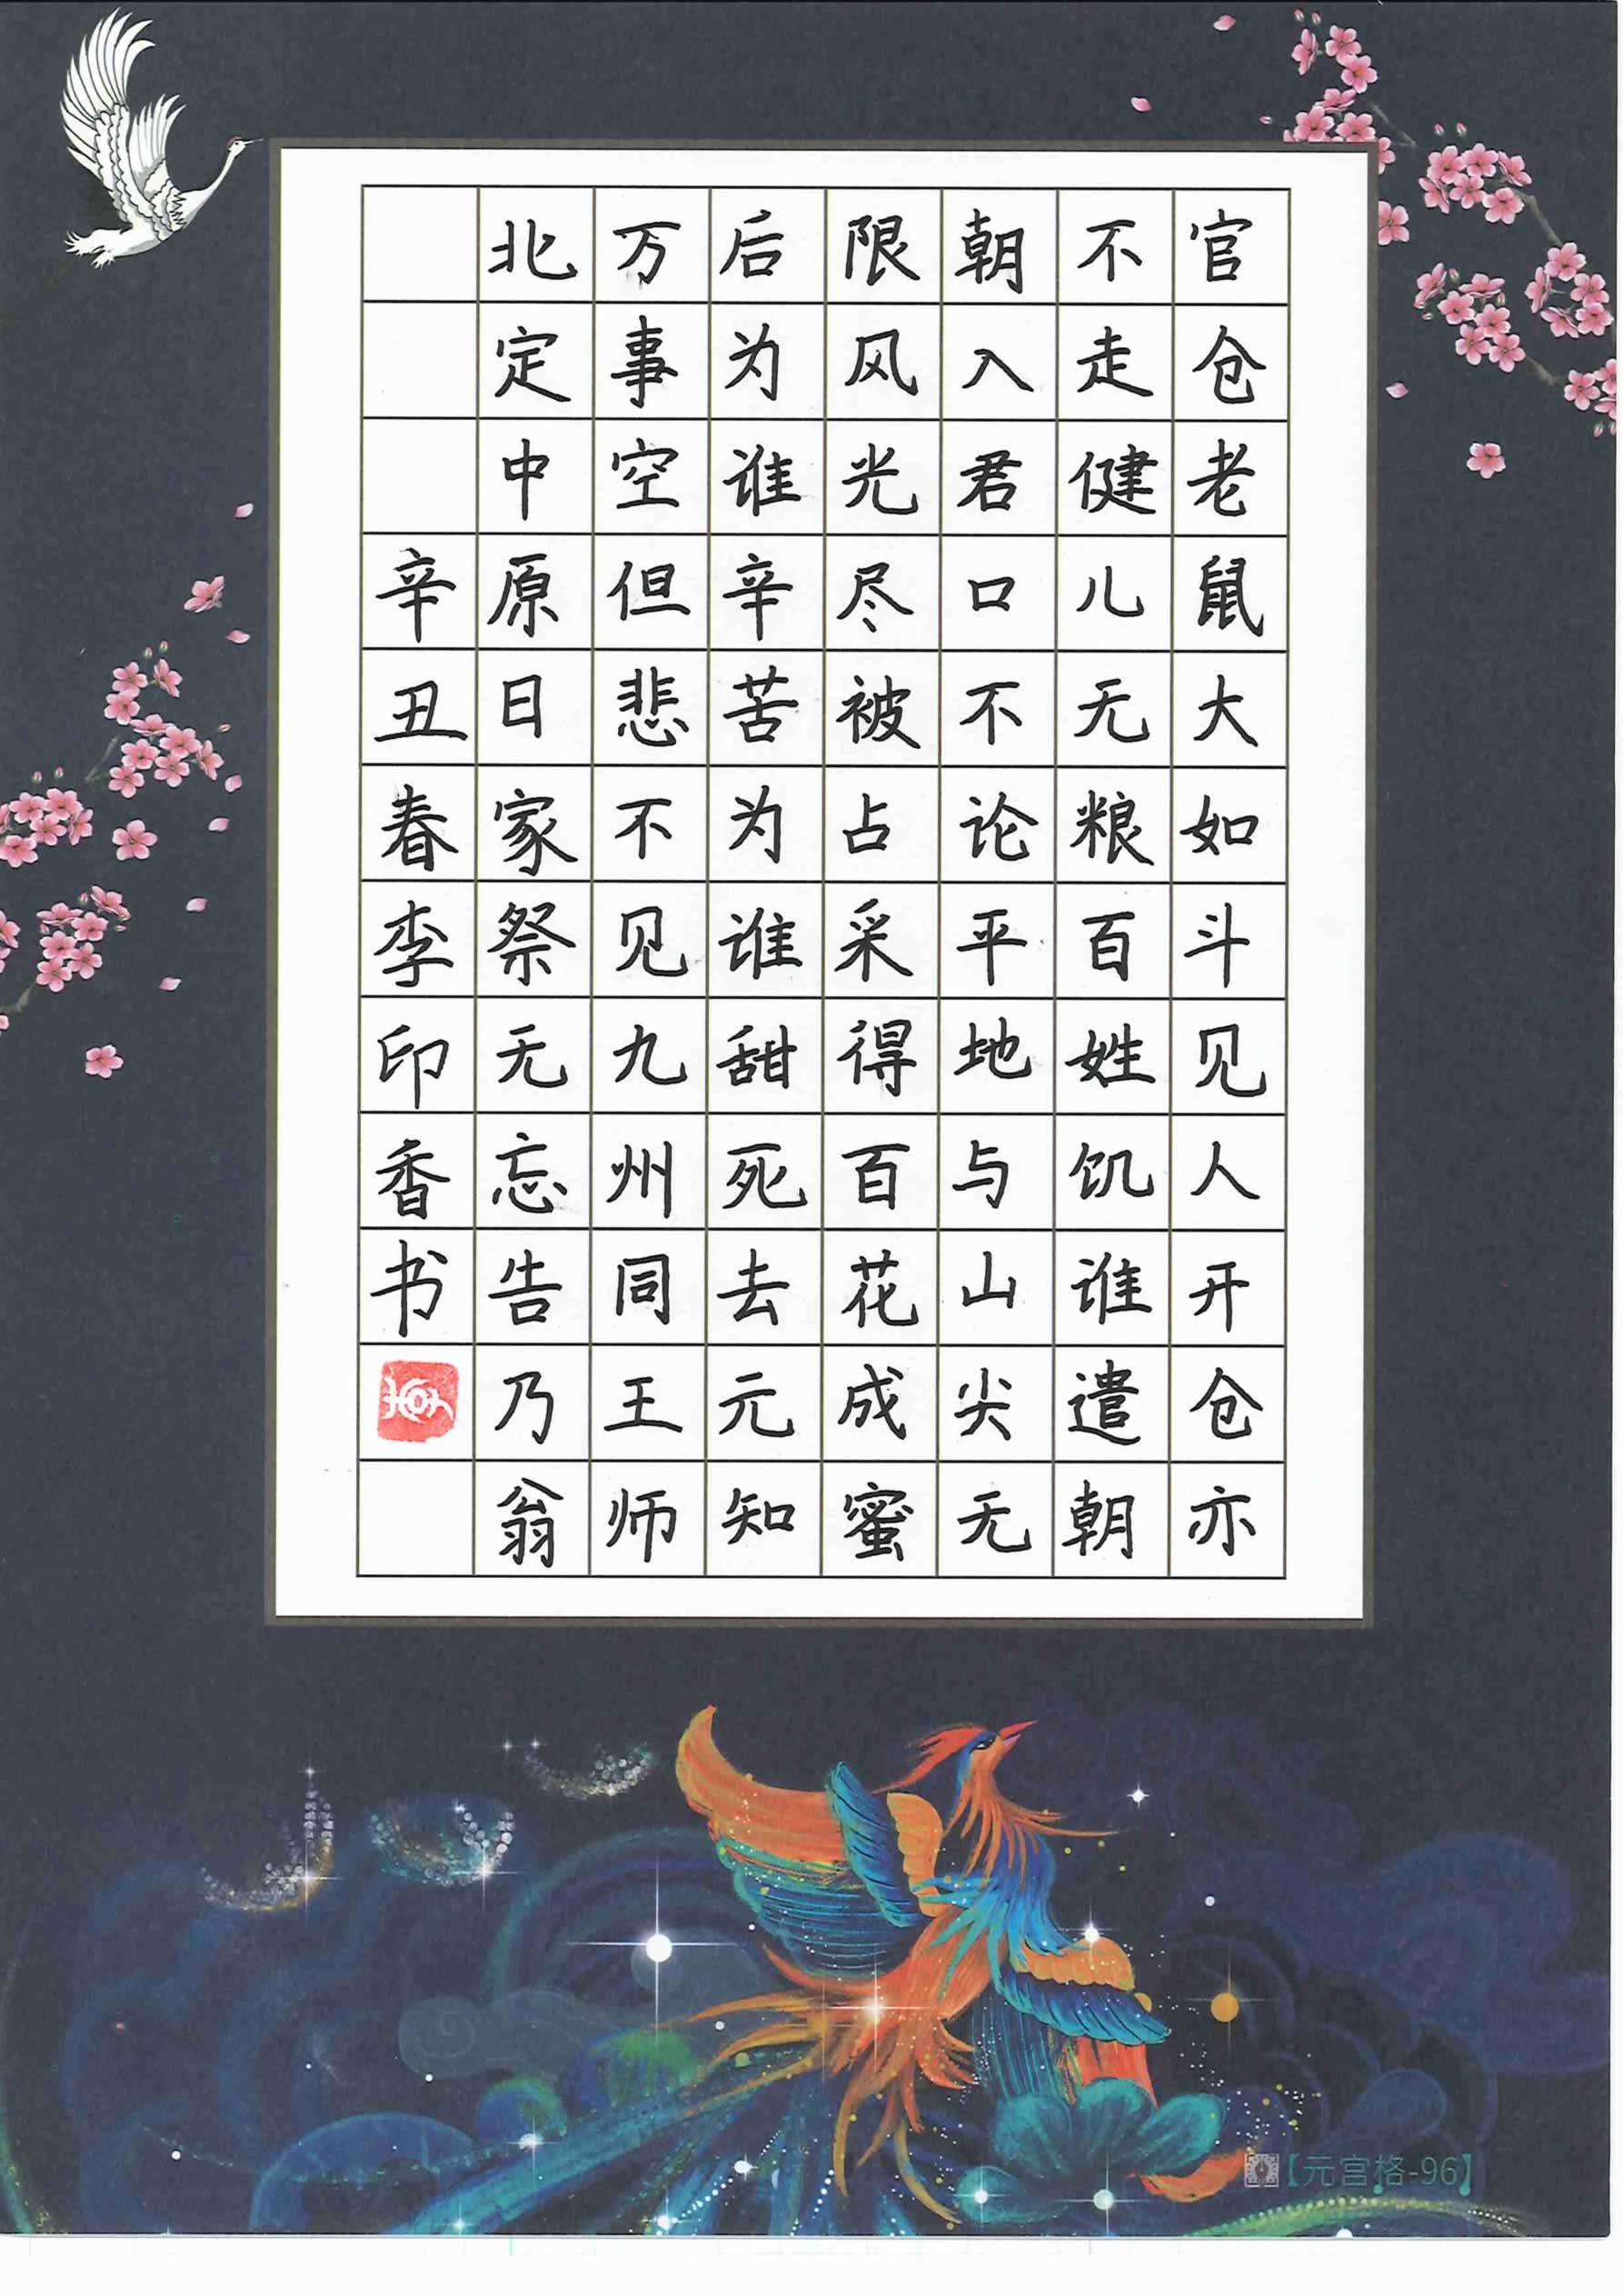 官仓老鼠大如斗见人开仓亦
不走健儿无粮百姓饥谁遣朝
朝入君口不论平地与山尖无
限风光尽被占采得百花成蜜
后为谁辛苦为谁甜死去元知
万事空但悲不见九州同王师
北定中原日家祭无忘告乃翁
辛丑春李印香书
【元宫格-96】